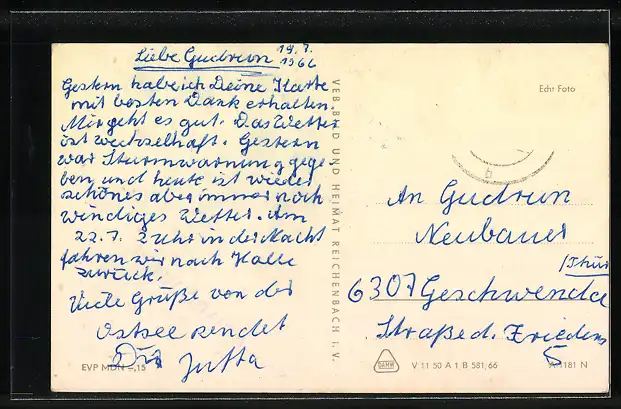 19.7.
Liebe Gudrun 1966
Gestern habe ich Deine Karte
mit besten Dank erhalten.
Mir geht es gut. Das Wetter
ist wechselhaft. Gestern
war Sturmwarnung gege-
ben und heute ist wieder
schönes aber immer noch
windiges Wetter. Am
22.7. 2 Uhr in der Nacht
fahren wir nach Halle
zurück.
Viele Grüße von der
Ostsee sendet
Dir Jutta
EVP MDN 0,15
VEB BILD UND HEIMAT REICHENBACH I. V.
Echt Foto
An Gudrun
Neubauer
6307 Geschwenda
/Thür
Straße d. Friedens
5
DAMW
V 11 50 A 1 B 581/66
181 N